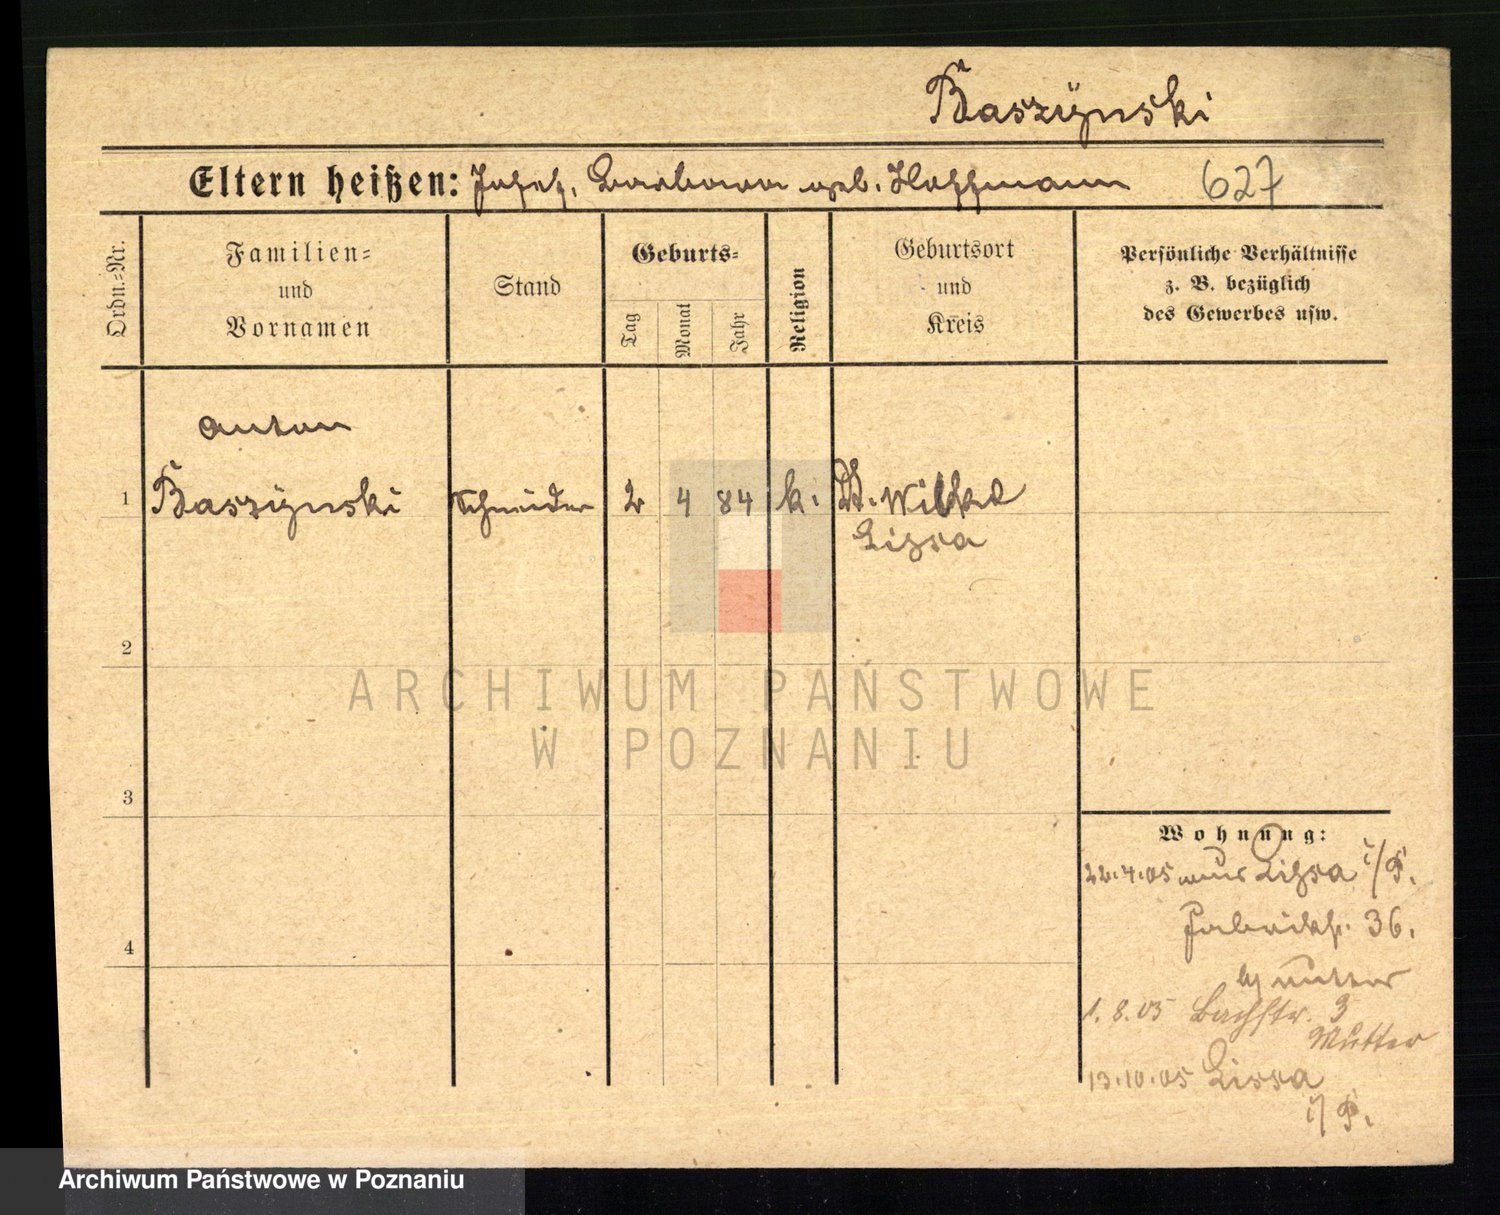 Baszÿnski
Eltern heißen: Josef, Barbara geb. Hoffmann 627
Ordn.-Nr.
Familien-
und
Vornamen
Stand
Geburts-
Tag
Monat
Jahr
Religion
Geburtsort
und
Kreis
Persönliche Verhältnisse
z. B. bezüglich
des Gewerbes usw.
Anton
1 Baszÿnski Schneider 2 4 84 k. Dt. Wilke
Lissa
2
3
4
ARCHIWUM PAŃSTWOWE
W POZNANIU
Wohnung:
22.4.05 aus Lissa i/P.
Fabrikstr. 36.
b/ Mutter
1.8.05 Bachstr. 3
Mutter
13.10.05 Lissa
i/P.
Archiwum Państwowe w Poznaniu